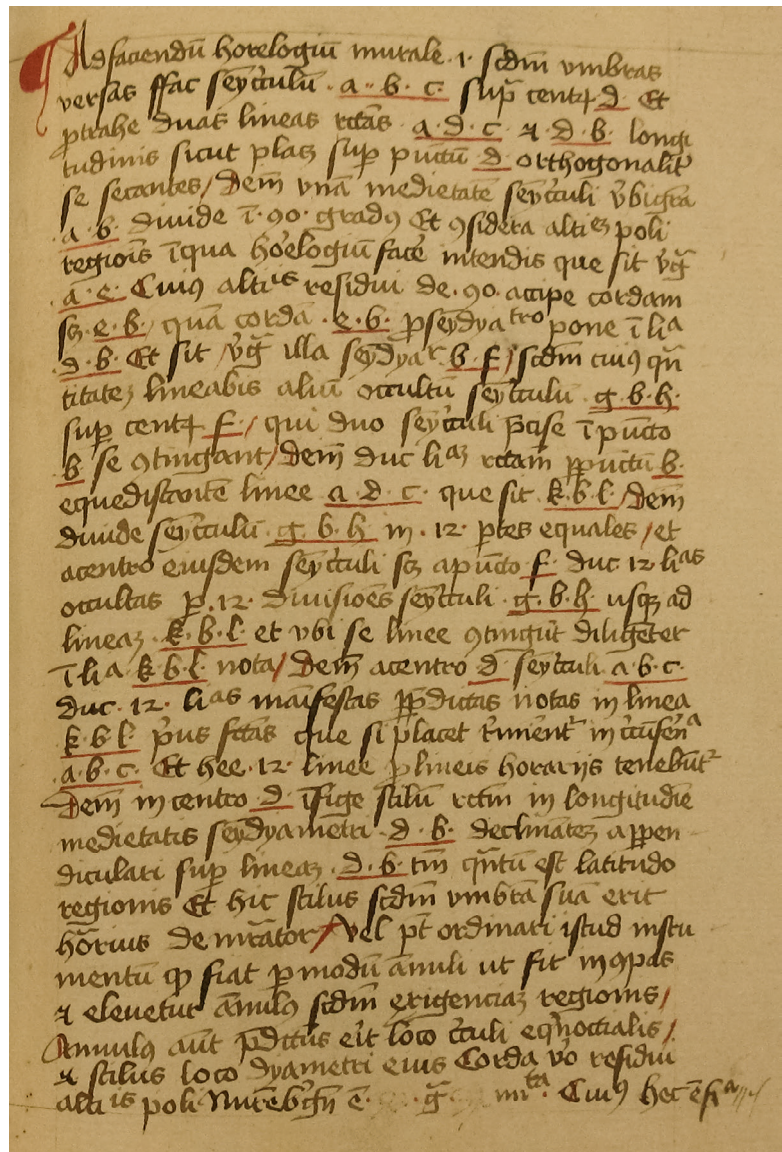 Ad faciendū horelogiū murale .i. scdm̄ vmbras
versas ffac semycͥculū . a . b . c . sup̄ centꝝ d. Et
ꝓtrahe duas lineas rctās . a . d . c ⁊ . d . b . longi
tudinis sicut placꝫ suꝑ pūctū . d . orthogonalit̄
se secantes / Dem̄ vnā medietatē semycͥculi v̄bigrā
. a . b . diuide ī . 90 . gradꝰ Et ꝯsidera altiēꝫ poli
regiōis ī qua hōelogiū facē intendis que sit v̄g̃
. a . e . Cuiꝰ altiⁱˢ residui de . 90 . accipe cordam
scꝫ . e . b . / quā cordā . e . b . ꝓ semydyatro pone ī liᵃ
. d . b . Et sit / v̄g̃ illa semydyaʳ . b . f . / scdm̄ cuiꝰ qñ
titateꝫ lineabis aliū occultū semycͥculū . g . b . h .
suꝑ centꝝ f . / qui duo semycͥculi p̄cise ī pūcto
. b . se ꝯtingant / Dem̄ duc liaꝫ rctam̄ ꝑ pūctū b .
equedistantē linee . a . d . c . que sit . k . b . l . / Dem̄
diuide semycͥculū . g . b . h . in . 12 . ꝑtes equales / et
acentro eiusdem semycͥculi scꝫ a pūcto . f . duc . 12 . liᵃˢ
occultas ꝑ . 12 . diuisiōes semycͥculi . g . b . h . usqꝫ ad
lineaꝫ . k . b . l . et vbi se linee ꝯtingūt diligēter
ī liᵃ . k . b . l . nota / Dem̄ acentro d semycͥculi . a . b . c .
duc . 12 . liᵃˢ māifestas ꝑ p̄dictas notas in linea
. k . b . l . p̄us fctās que si placet t̄mīent̃ in cͥcūfēnᵃ
. a . b . c . Et hee . 12 . linee ꝓ lineis horarijs tenebūt̃
Dem̄ in centro . d . īfige stilū rctm̄ in longitudīe
medietatis semydyametri . d . b . declinātēꝫ appen
diculari suꝑ lineaꝫ . d . b . tm̄ qñtū est latitudo
regionis Et hic stilus scdm̄ vmbrā suā erit
hōrius demr̄ator / Vel pt̄ ordinari istud instru
mentū qꝫ fiat ꝑ modū ānuli ut fit in ꝯpās
⁊ eleuetur ānulꝰ scdm̄ exigenciaꝫ regionis /
Annulꝰ aūt p̄dctūs erit loco cͥculi eqͥnoctialis /
⁊ stilus loco dyametri eius Corda v̄o residui
altiⁱˢ poli Nurēbgñ ē g̃ miᵗᵃ . Cuiꝰ hec